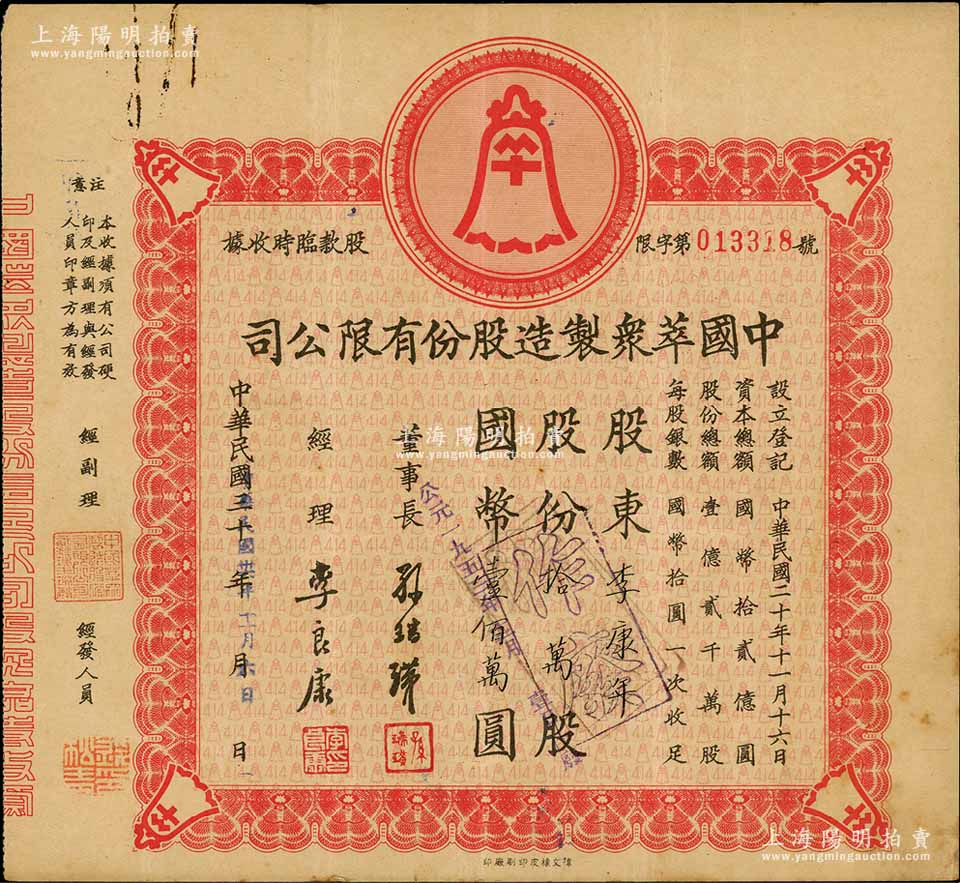 上海陽明拍賣
www.yangmingauction.com
股款臨時收據
限字第013318號
中國萃衆製造股份有限公司
設立登記 中華民國二十年十一月十六日
資本總額 國幣拾貳億圓
股份總額 壹億貳千萬股
每股銀數 國幣拾圓一次收足
股東 李康年
股份 拾萬股
國幣 壹佰萬圓
董事長
經理 李良康
中華民國三十 年 月 日
注意
本收據須有公司硬
印及經副理與經發
人員印章方為有效
經副理
經發人員
414
上海陽明拍賣
www.yangmingauction.com
上海陽明拍賣
www.yangmingauction.com